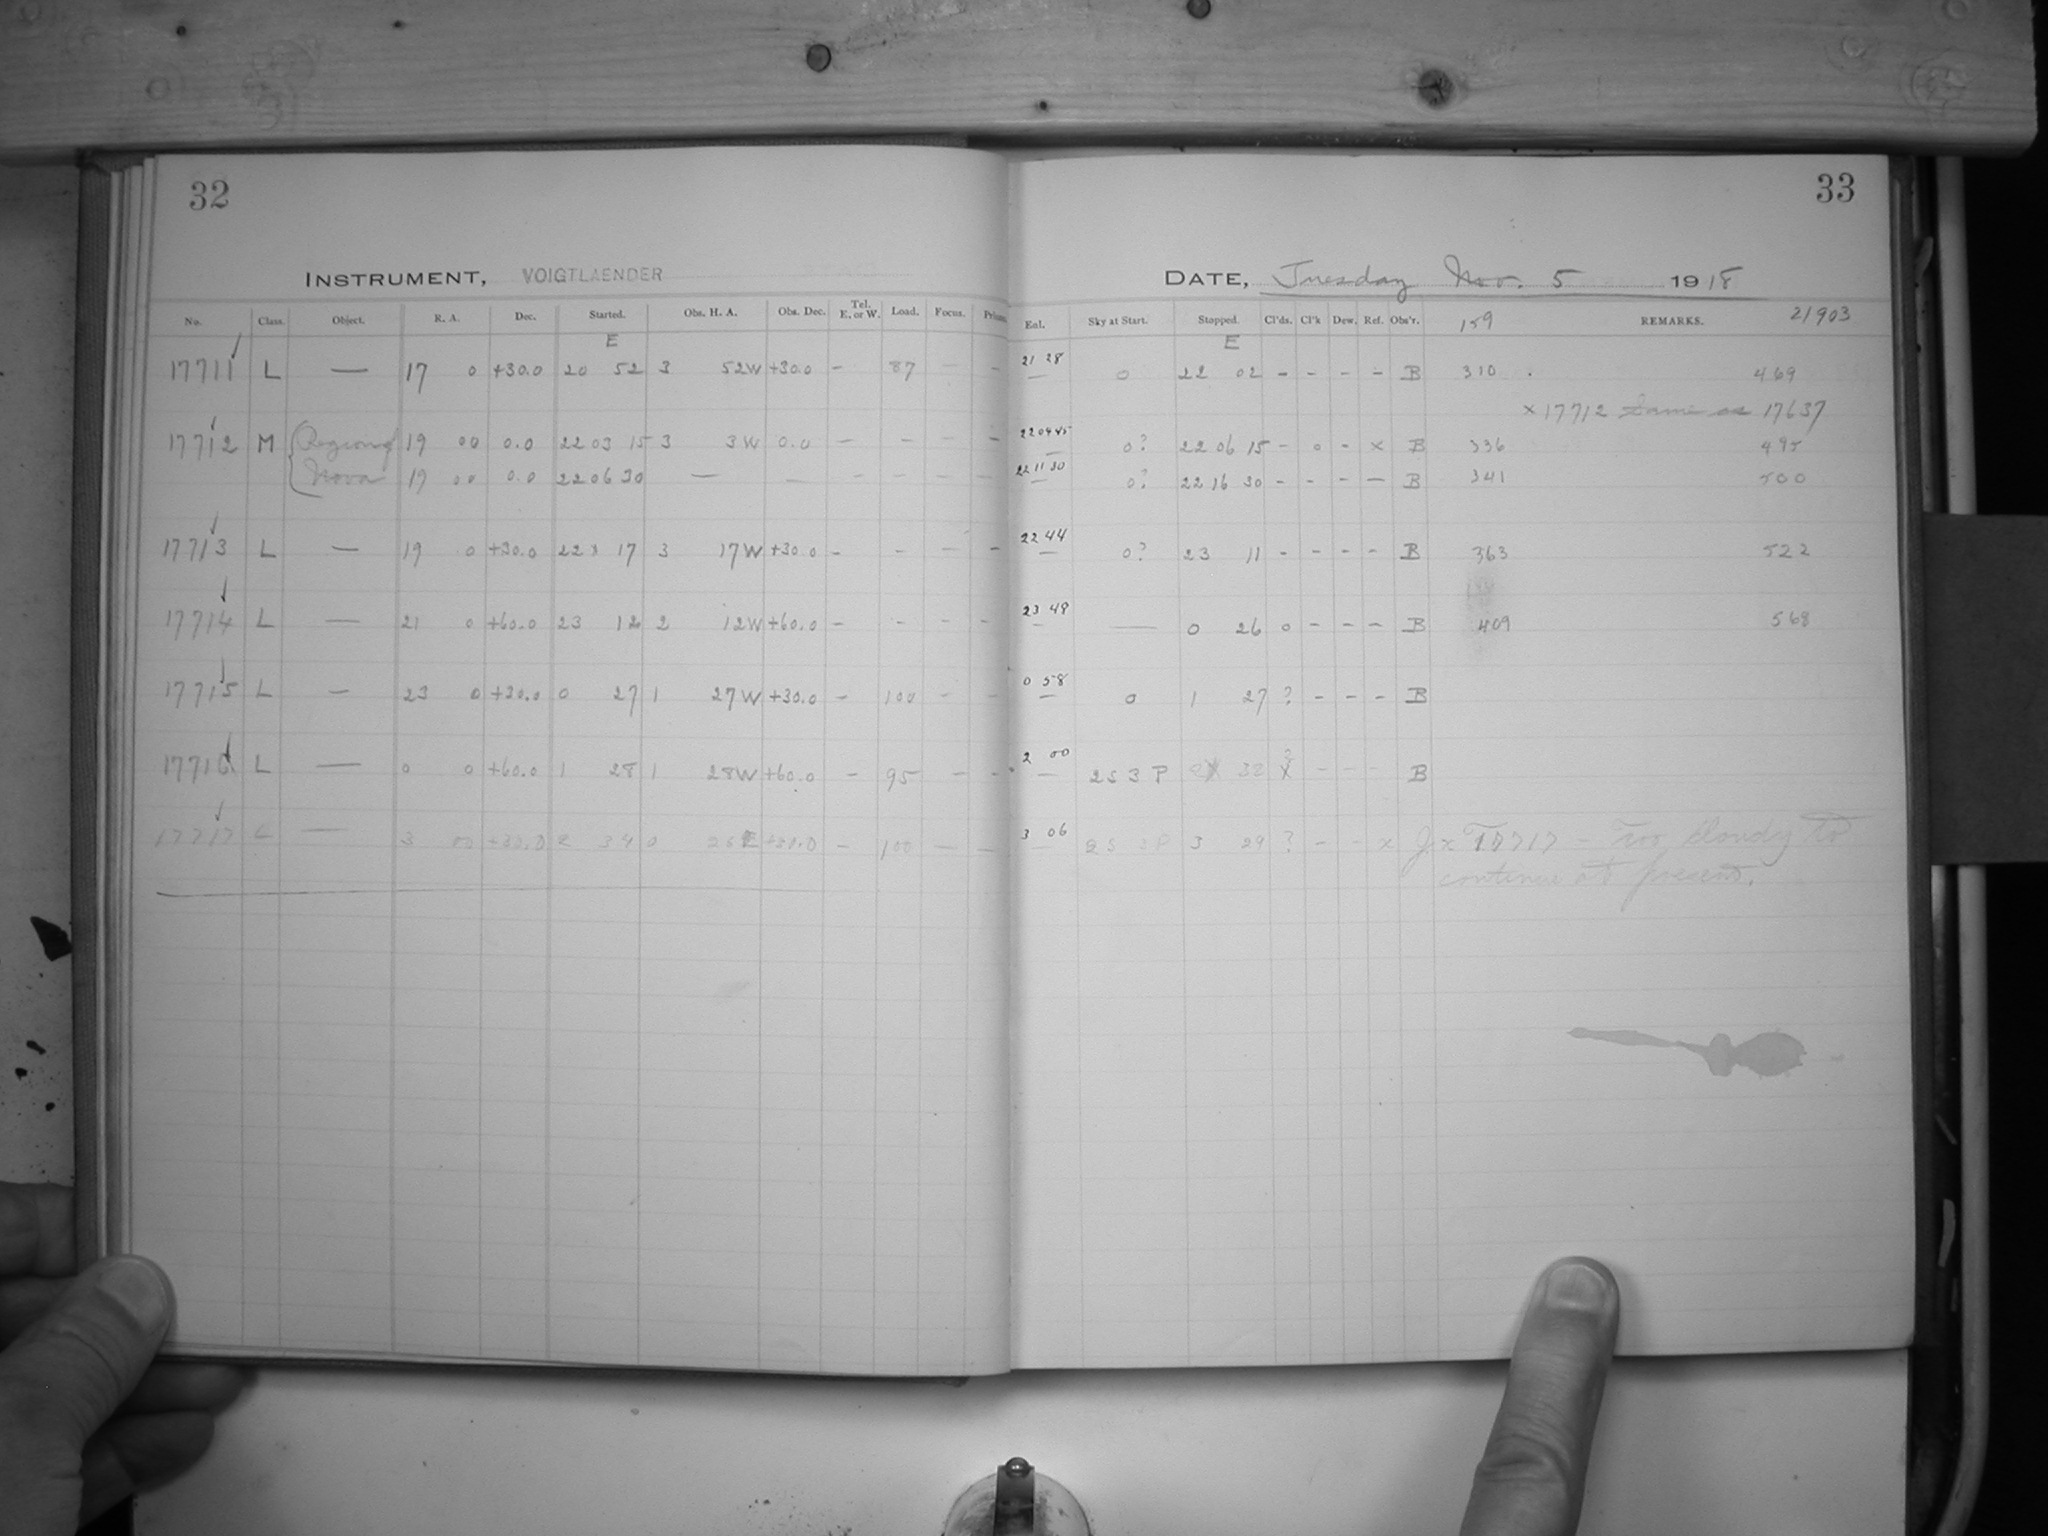 32
INSTRUMENT, VOIGTLAENDER
No. Class. Object. R. A. Dec. Started. Obs. H. A. Obs. Dec. Tel. E. or W. Load. Focus.
E
17711 L — 17 0 +30.0 20 52 3 52W +30.0 - 87 - -
17712 M Region of 19 00 0.0 22 03 15 3 3W 0.0 - - - -
Nova 19 00 0.0 22 06 30 — — - - - -
17713 L — 19 0 +30.0 22 17 3 17W +30.0 - - - -
17714 L — 21 0 +60.0 23 12 2 12W +60.0 - - - -
17715 L — 23 0 +30.0 0 27 1 27W +30.0 - 100 - -
17716 L — 0 0 +60.0 1 28 1 28W +60.0 - 95 - -
17717 L — 3 00 +30.0 2 34 0 26E +30.0 - 100 - -
33
DATE, Tuesday Nov. 5 1918
Enl. Sky at Start. Stopped. Cl'ds. Cl'k Dew. Ref. Obs'r. 159 REMARKS. 21903
E
21 28 — 0 22 02 - - - - B 310 . 469
x 17712 same as 17637
22 04 45 — 0? 22 06 15 - 0 - x B 336 495
22 11 30 — 0? 22 16 30 - - - — B 341 500
22 44 — 0? 23 11 - - - - B 363 522
23 48 — — 0 26 0 - - - B 409 568
0 58 — 0 1 27 ? - - - B
2 00 — 2S 3 P 32 ? - - - B
3 06 — 2S 3P 3 29 ? - - x J. x 17717 - Too cloudy to
continue at present.